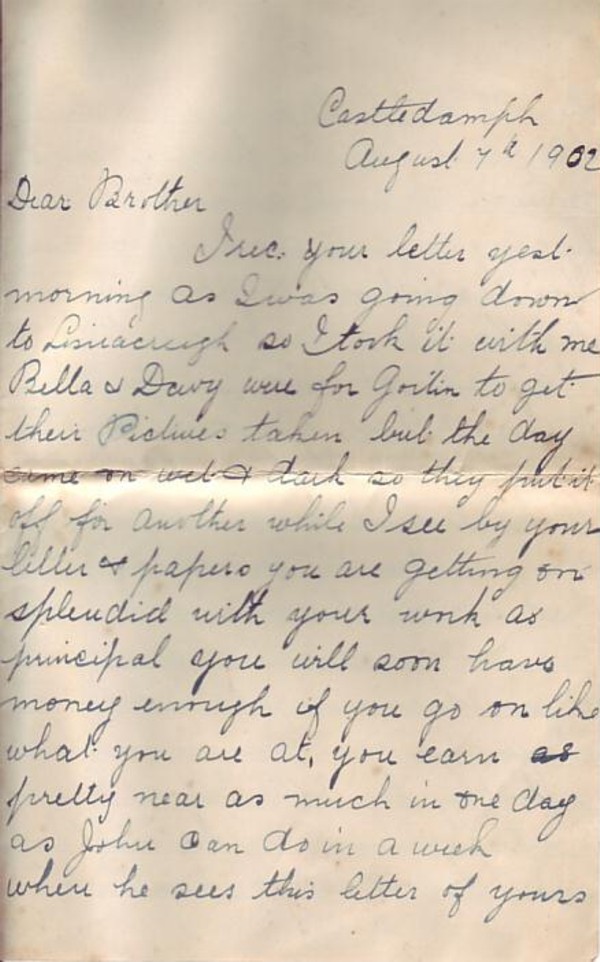 Castledamph
August 7th 1902
Dear Brother
I rec. your letter yest.
morning as I was going down
to Lisnacreigh so I took it with me
Bella & Davy were for Gortin to get
their Pictures taken but the day
came on wet & dark so they put it
off for another while I see by your
letter & papers you are getting on
splendid with your work as
principal you will soon have
money enough if you go on like
what you are at, you earn as
pretty near as much in one day
as John can do in a week
when he sees this letter of yours